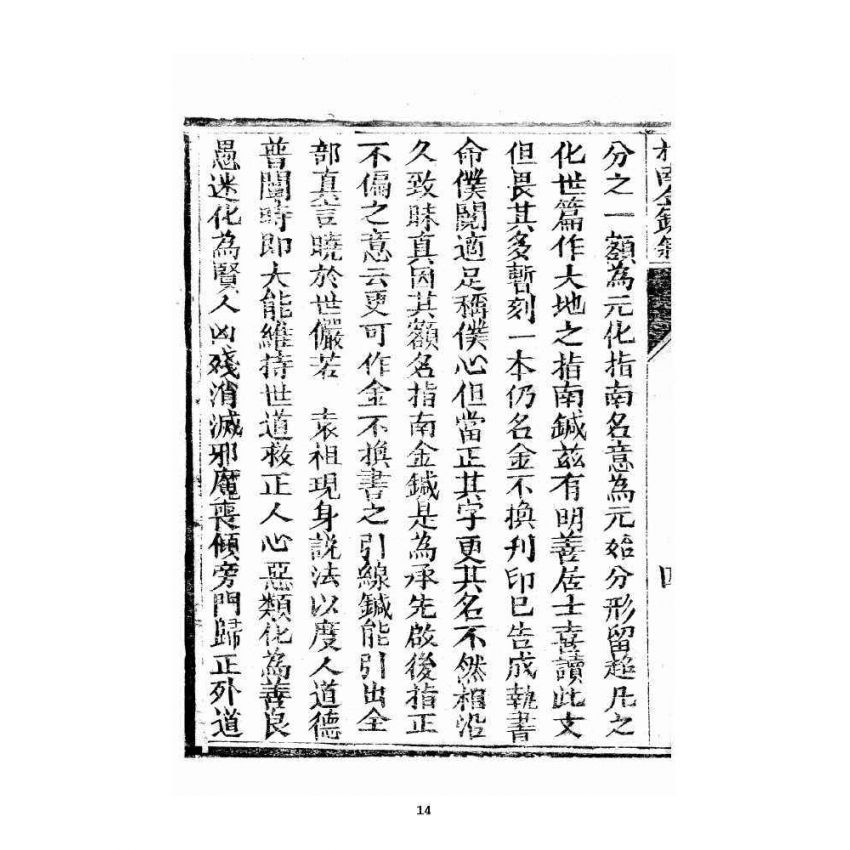 分之一額為元化指南名意為元始分形留趁凡之
化世篇作大地之指南鍼茲有明善居士喜讀此文
但畏其多暫刻一本仍名金不換刋印已告成執書
命僕閱適足稱僕心但當正其字更其名不然相沿
久致昧真因其額名指南金鍼是為承先啟後指正
不偏之意云更可作金不換書之引線鍼能引出全
部真言曉於世儼若 袁祖現身說法以度人道德
普闡時即大能維持世道救正人心惡類化為善良
愚迷化為賢人凶殘消滅邪魔喪傾旁門歸正外道
14